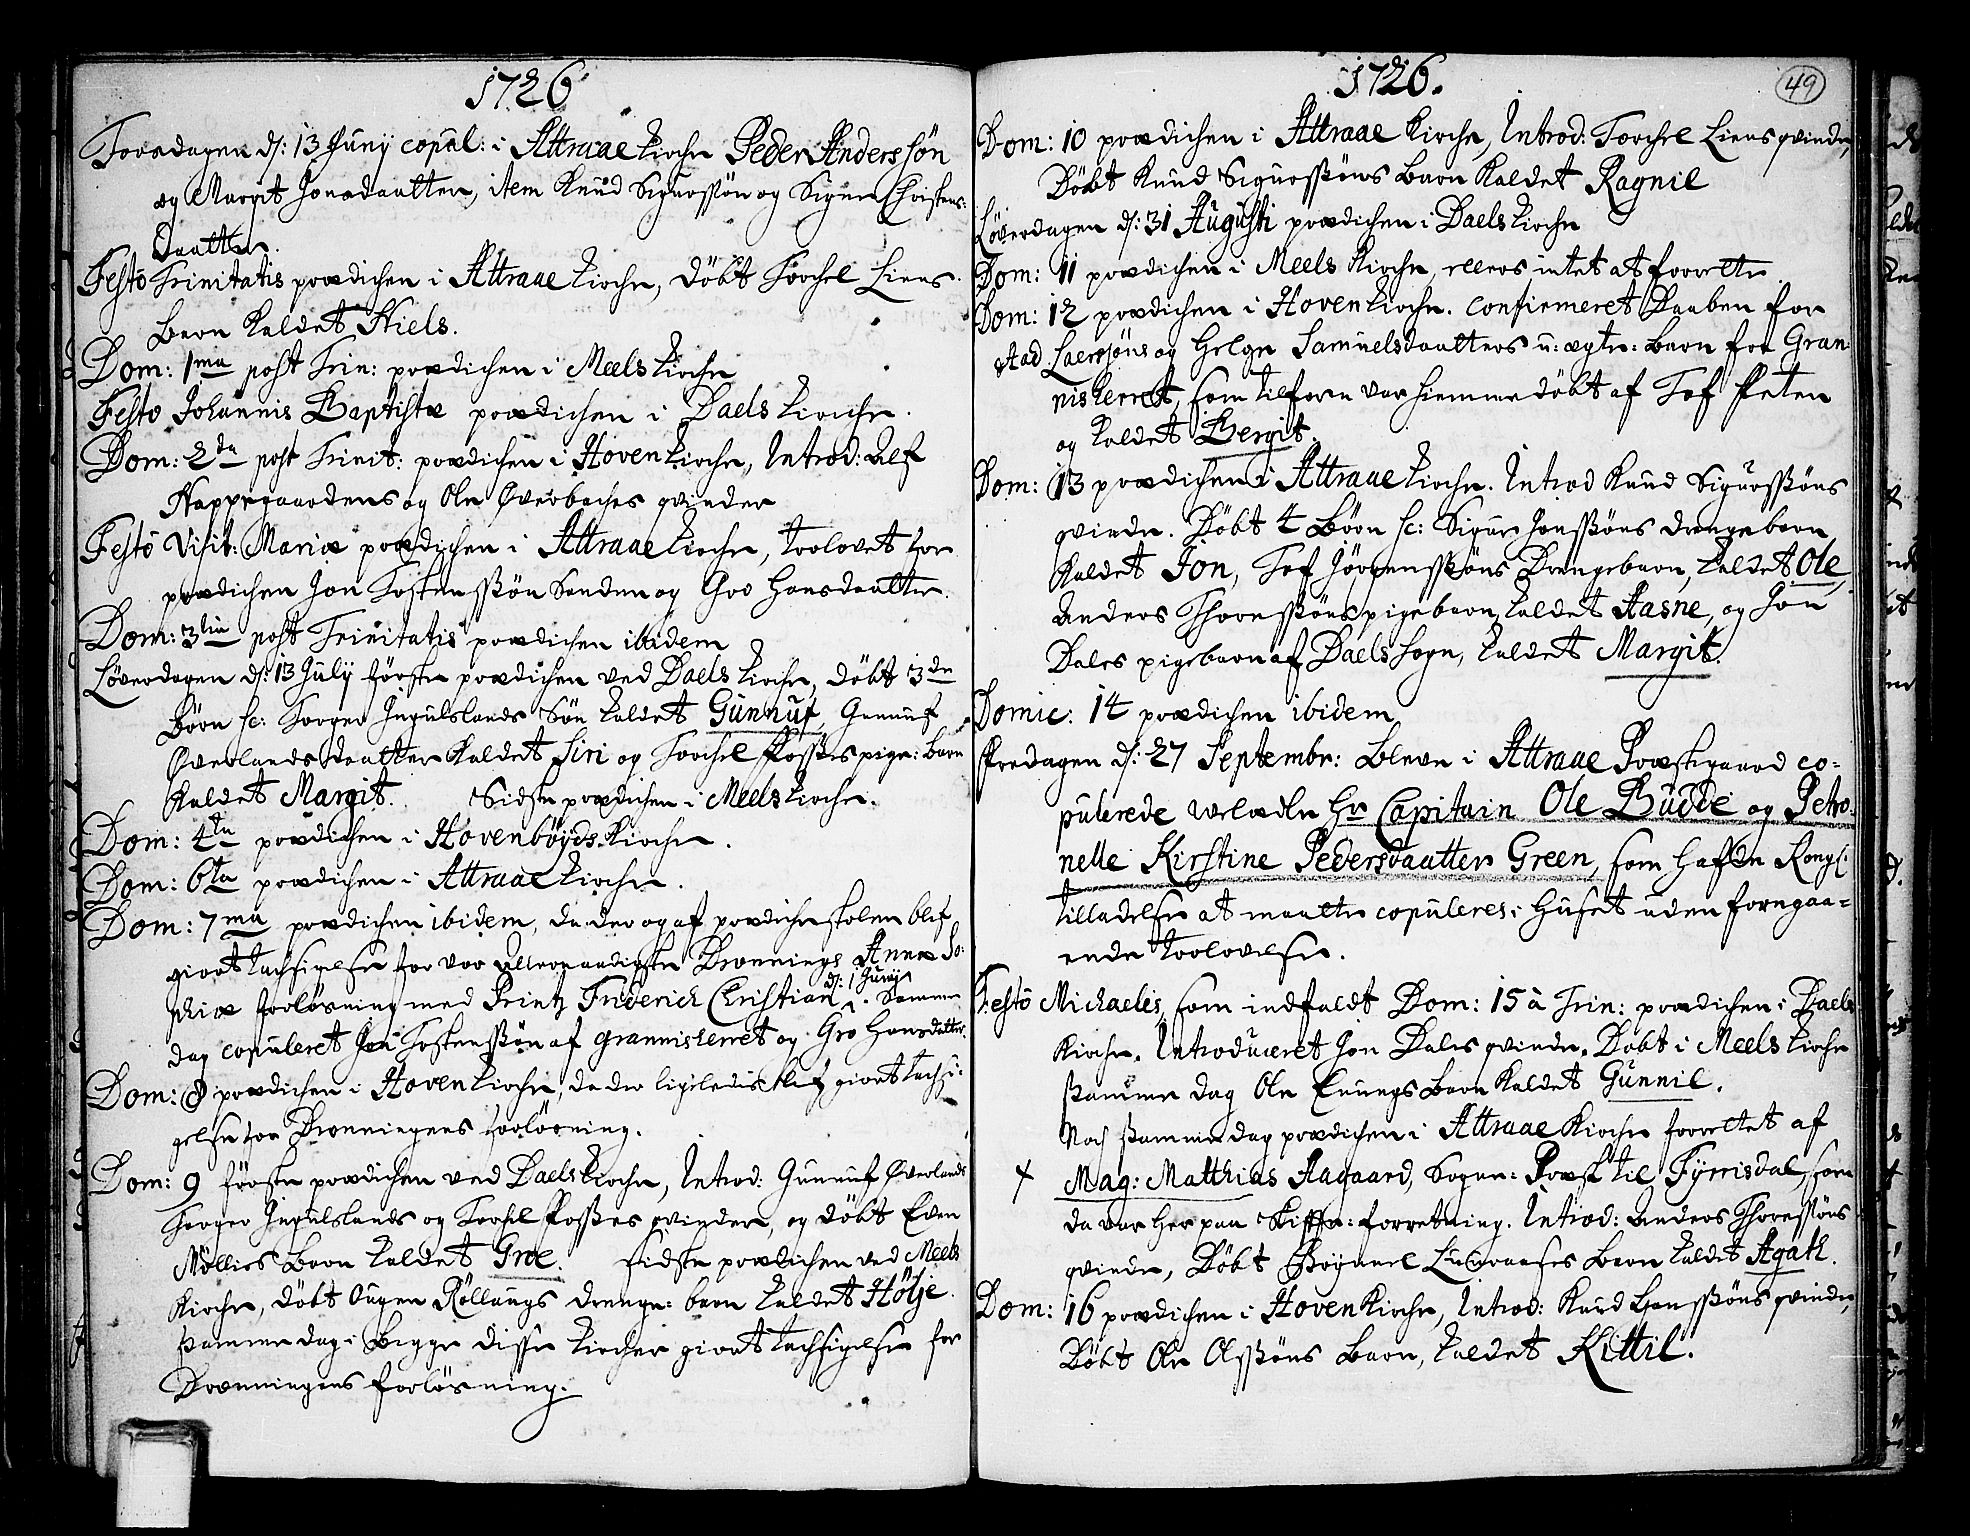 1726
Torsdagen d: 13 Junÿ copul: i Attraae kirche Peder Anderssön
og Margit Jonsdaatter, item Knud Sigurssön og Sigur Christens:
daatter.
Festo Trinitatis prædichen i Attraae kirche, döbt Torchel Liens
Barn kaldet Niels.
Dom: 1ma post Trin: prædichen i Meels kirche
Festo Johannis Baptistæ prædichen i Daels kirche.
Dom: 2da post Trinit: prædichen i Hoven kirche, Introd: Ulf
Nappegaardens og Ole Överbøches qvinder
Festo Visit: Mariæ prædichen i Attraae kirche, trolovet for
prædichen Jon Tostenssön Sanden og Groe Hansdaatter.
Dom: 3tia post Trinitatis prædichen ibidem
Löverdagen d: 13 Julÿ förste prædichen ved Daels kirche, döbt 3de
Börn sc: Torger Ingulslands Sön kaldet Gunnuf, Gunnuf
Øverlands daatter kaldet Siri og Torchel Fosses pige: Barn
kaldet Margit. Sidste prædichen i Meels kirche.
Dom: 4ta prædichen i Hovenbøÿds kirche.
Dom: 6ta prædichen i Attraae kirche.
Dom: 7ma prædichen ibidem, da der og af prædichestolen blef
giort tachsigelse for vor allernaadigste Dronnings Annæ So:
phiæ forlösning med Printz Friderich Christian d: 1 Junÿ. Samme
dag copuleret Jon Tostenssön af Granniskerret og Gro Hansdatter.
Dom: 8 prædichen i Hoven kirche, da der ligeledis blef giort tachsi:
gelse for Dronningens forlösning.
Dom: 9 förste prædichen ved Daels kirche, Introd: Gunnuf Øverlands
Torger Ingulslands og Torchel Fosses qvinder, og döbt Even
Möllers Barn kaldet Groe. Sidste prædichen ved Meels
Kirche, döbt Ougen Röllangs drenge: barn kaldet Hölje.
Samme dag i begge disse kircher giort tachsigelse for
Dronningens forlösning.
1726.
49
Dom: 10 prædichen i Attraae Kirche, Introd: Torchel Liens qvinde,
Döbt Knud Sigurssöns Barn kaldet Ragnil
Löverdagen d: 31 Augusti prædichen i Daels kirche
Dom: 11 prædichen i Meels kirche, ellers intet at forrette
Dom: 12 prædichen i Hoven kirche. confirmeret Daaben for
Aad Laerssöns og Helge Samuelsdaatters u: ægte: Barn fra Gran:
niskerret, som tilforn var hiemmedöbt af Tof
og kaldet Bergit.
Dom: 13 prædichen i Attraae kirche. Introd Knud Sigurssöns
qvinde. Döbt 4 Börn sc: Sigur Jonssöns drengebarn
kaldet Jon, Tof Jörgenssöns Drengebarn, kaldet Ole,
Anders Thoressöns pigebarn kaldet Aasne, og Jon
Dales pigebarn af Daels Sogn, kaldet Margit.
Domic: 14 prædichen ibidem
Fredagen d: 27 Septembr: Bleve i Attraae Præstegaard co=
pulerede velædle Hr Capitain Ole Budde og Petro:
nelle Kirstine Pedersdaatter Green, som hafde Kongl:
tilladelse at maatte copuleres i Huset uden foregaa=
ende trolovelse.
Festo Michaelis, som indfaldt Dom: 15 à Trin: prædichen i Daels
Kirche. Introduceret Jon Dales qvinde. Döbt i Meels kirche
samme dag Ole Enungs Barn kaldet Gunnil.
Noch samme dag prædichen i Attraae Kirche forrettet af
+ Mag: Matthias Aagaard, Sogne: Præst til Fÿrrisdal, som
da var her paa Skifte: forretning. Introd: Anders Thoressöns
qvinde, Döbt Barn kaldet Agath.
Dom: 16 prædichen i Hoven Kirche, Introd: Knud Hanssöns qvinde,
Döbt Ole Olssöns Barn, kaldet Kittil.